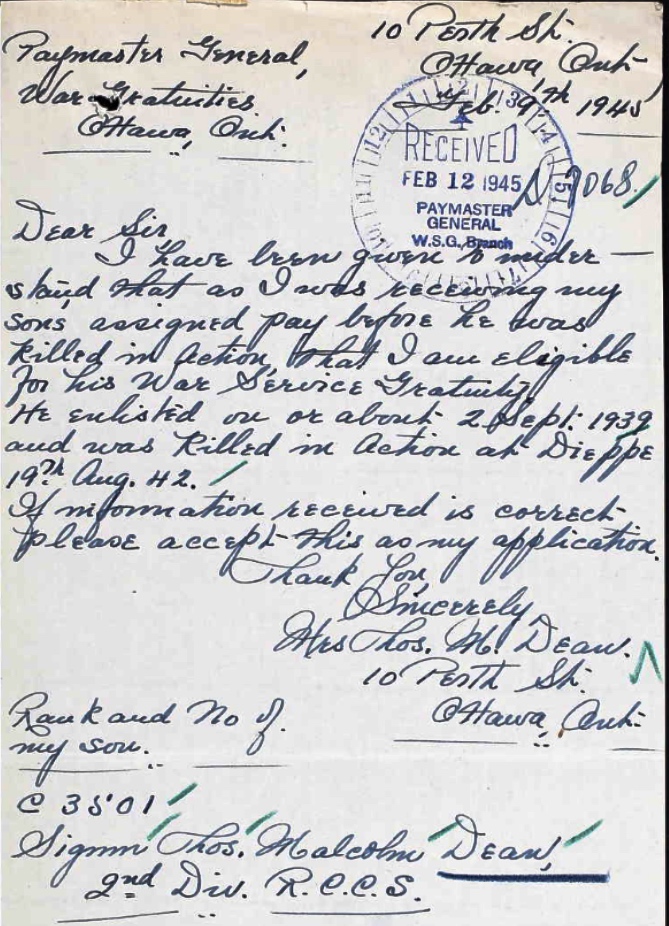 10 Perth St.
Ottawa, Ont.
Feb. 9th 1945
Paymaster General,
War Gratuities
Ottawa, Ont.
RECEIVED
FEB 12 1945
PAYMASTER
GENERAL
W.S.G. Branch
N 9068
Dear Sir
I have been given to under-
stand that as I was receiving my
sons assigned pay before he was
Killed in Action, that I am eligible
for his War Service Gratuity.
He enlisted on or about 2 Sept. 1939
and was Killed in Action at Dieppe
19th Aug. 42.
If information received is correct
please accept this as my application.
Thank You,
Sincerely
Mrs Thos. M. Dean.
10 Perth St.
Ottawa, Ont.
Rank and No of.
my son.
C 3501
Signm Thos. Malcolm Dean,
2nd Div. R.C.C.S.